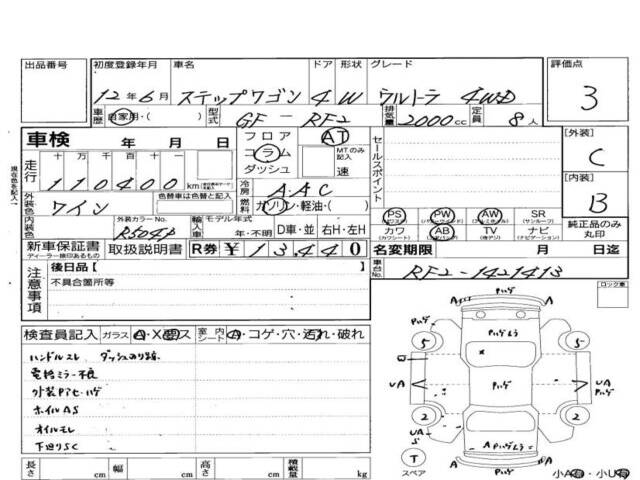 出品番号 初度登録年月 車名 ドア 形状 グレード 評価点
12年6月 ステップワゴン 4 W ウルトラ 4WD 3
車歴 自家用・( ) 型式 GF－RF2 排気量 2000cc 定員 8人
車検 年 月 日
フロア AT
コラム MTのみ記入
ダッシュ 速
セールスポイント
[外装] C
[内装] B
現在色を記入
走行 十万千百十一
110400 km
冷房 AAC
外装色 ワイン
色替車は色替と記入
燃料 ガソリン・軽油・( )
内装色 外装カラーNo. R504P
輸入車 モデル年式 年・不明 D車・並 右H・左H
PS PW AW SR
(パワステ) (パワーウインドウ) (アルミホイル) (サンルーフ)
カワ AB TV ナビ
(カワシート) (エアバック) (後デジ) (ナビゲーション)
純正品のみ丸印
新車保証書 取扱説明書 R券 ¥13440
ディーラー検印あるもの
名変期限 月 日迄
車台No. RF2-1421413
注意事項 後日品[ ]
不具合箇所等
ロック車
検査員記入 ガラス A・X・要ス 室内シート A・コゲ・穴・汚れ・破れ
ハンドルスレ ダッシュのり跡
電格ミラー不良
外装Pアセ・ハゲ
ホイルAS
オイルモレ
下廻りSC
A Pハゲ A
Pハゲムラ
5 5
UA A Pハゲ A UA Pハゲ
2 2
UA S
A Pハゲムラ
T スペア
A Pハゲ A
小A有・小U有
長さ cm 幅 cm 高さ cm 積載量 kg